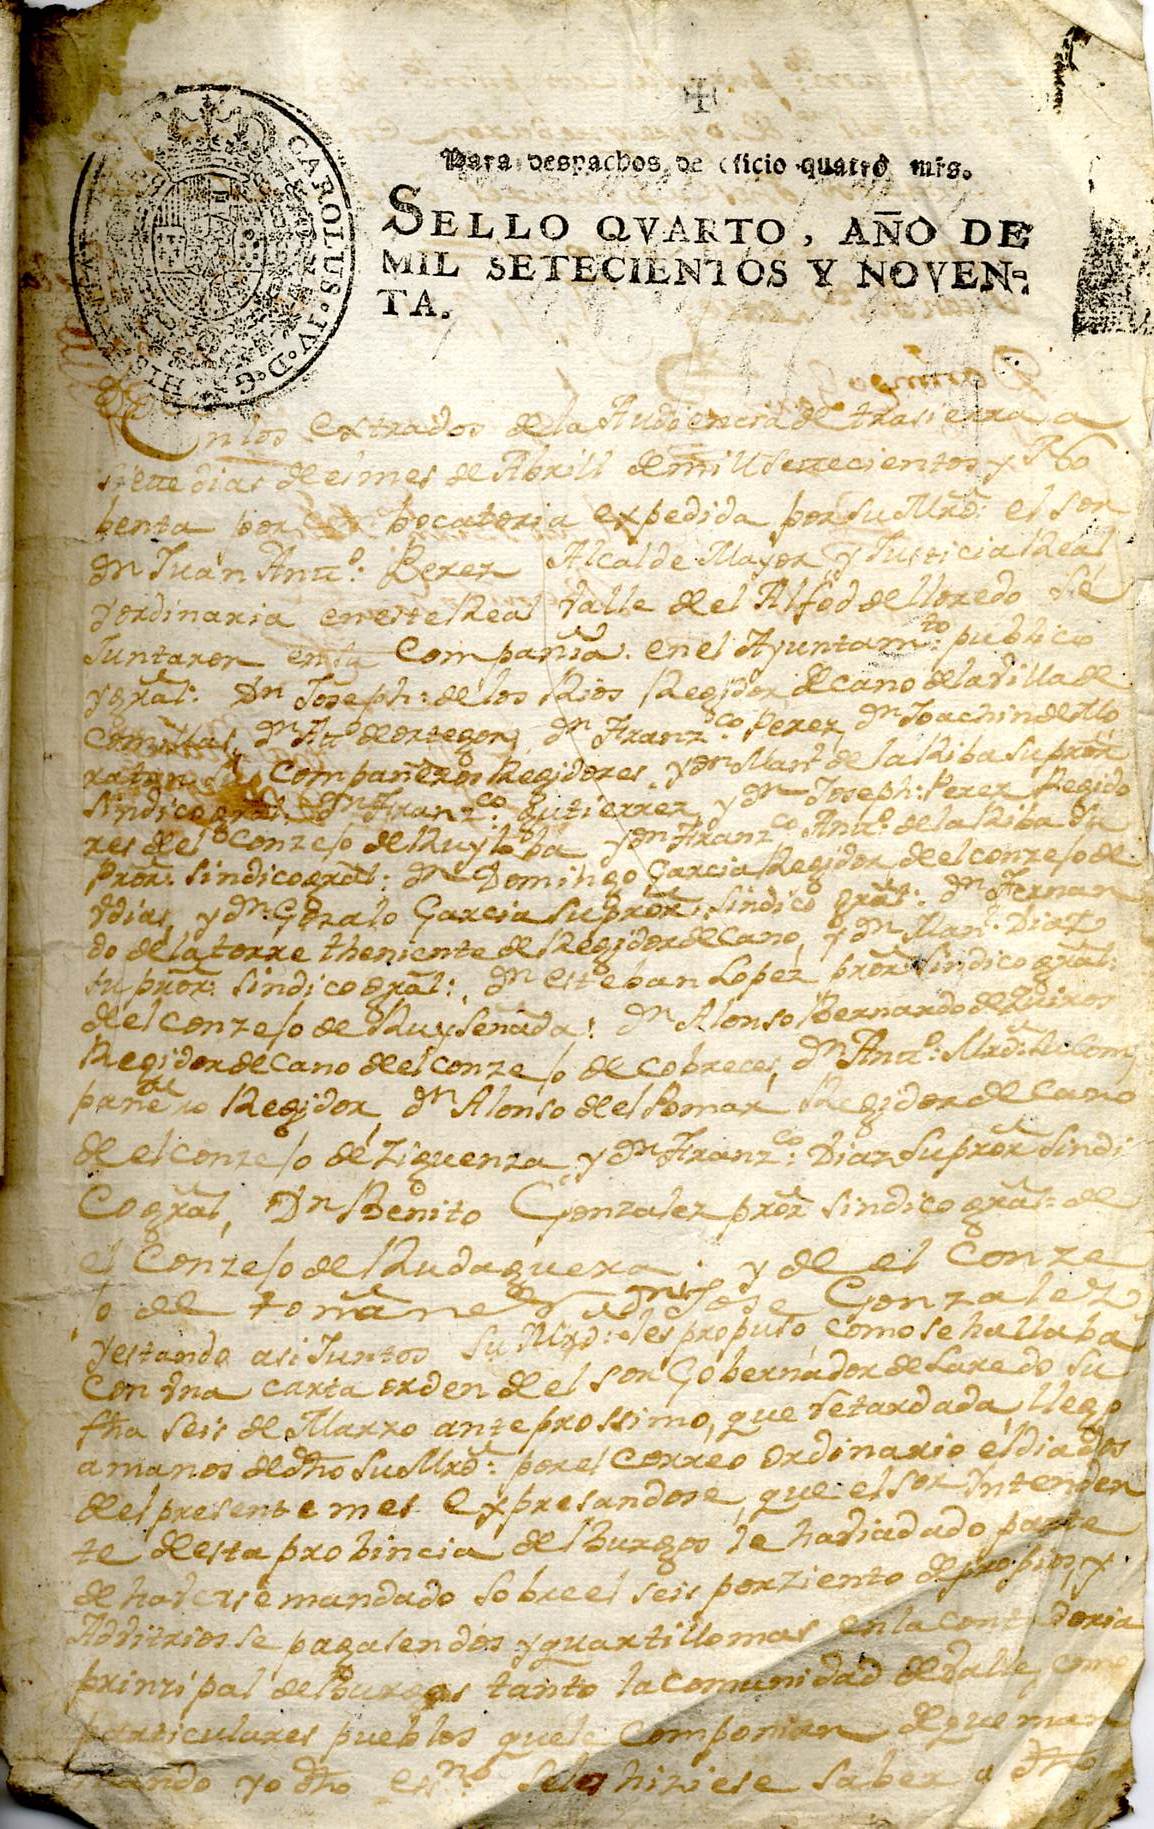 CAROLUS · IV · D · G · HIS
Para despachos de oficio quatro mrs.
SELLO QVARTO, AÑO DE
MIL SETECIENTOS Y NOVEN-
TA.
En los extrados de la Audiencia de trasierra a
siette dias de el mes de Abrill de mill settecientos y no
benta por combocatoria expedida por su Mrd: el sor
dn Juan Antto: Perez Alcalde Mayor y Justicia Real
y ordinaria en este Real Valle de el Alfoz de lloredo se
Juntaron en su Compañia en el Ayuntamto: publico
y gral: Dn Joseph: de los Rios Regidor decano de la Villa de
Comillas, dn Anto de ortegon, dn Franzco: Perez, dn Joachin de Mo
ratin sus Compañeros Regidores, y dn Man.l de la Riba su pror
sindico gral: dn Franzco: Gutierrez, y dn Joseph: Perez Regido
res de el Conzejo de Ruyloba y dn Franzco Anto: de la Riba su
Pror: Sindico gral: dn Domingo Garcia Regidor de el conzejo de
Vdias, y dn Gonzalo Garcia su pror: sindico gral: dn Fernan
do de la torre theniente de Regidor decano, y dn Man.l Diaz
su pror: sindico gral: dn esteban Lopez pror sindico gral:
de el conzejo de Ruyseñada: dn Alonso Bernardo de Quiros
Regidor decano de el conzejo de Cobreces, dn Anto: Mrd: su com
pañero Regidor, dn Alonso de el Pomar Regidor decano
de el conzejo de Ziguenza y dn Franzco: Diaz su pror sindi
co gral, Dn Benito Gonzalez pror sindico gral: de
el Conzejo de Rudaguera: y de el Conze
jo de toñanes dn Jose Gonzalez
y estando asi Juntos su Mrd: les propuso como se hallaba
con vna carta orden de el sor Gobernador de Laredo su
fha seis de Marzo ante prossimo, que retardada llego
a manos de dho su Mrd: por el correo ordinario el dia dos
del presente mes expresandose, que el sor Yntenden
te desta probincia de Burgos le havia dado parte
de haverse mandado sobre el seis por ziento de propios, y
Advitrios se pagasen dos y quartillo mas en la contadoria
prinzipal de Burgos tanto la comunidad de Valle, como
particulares pueblos que le componian de que man
dando yo dho esno: se lo hiziese saber a dho